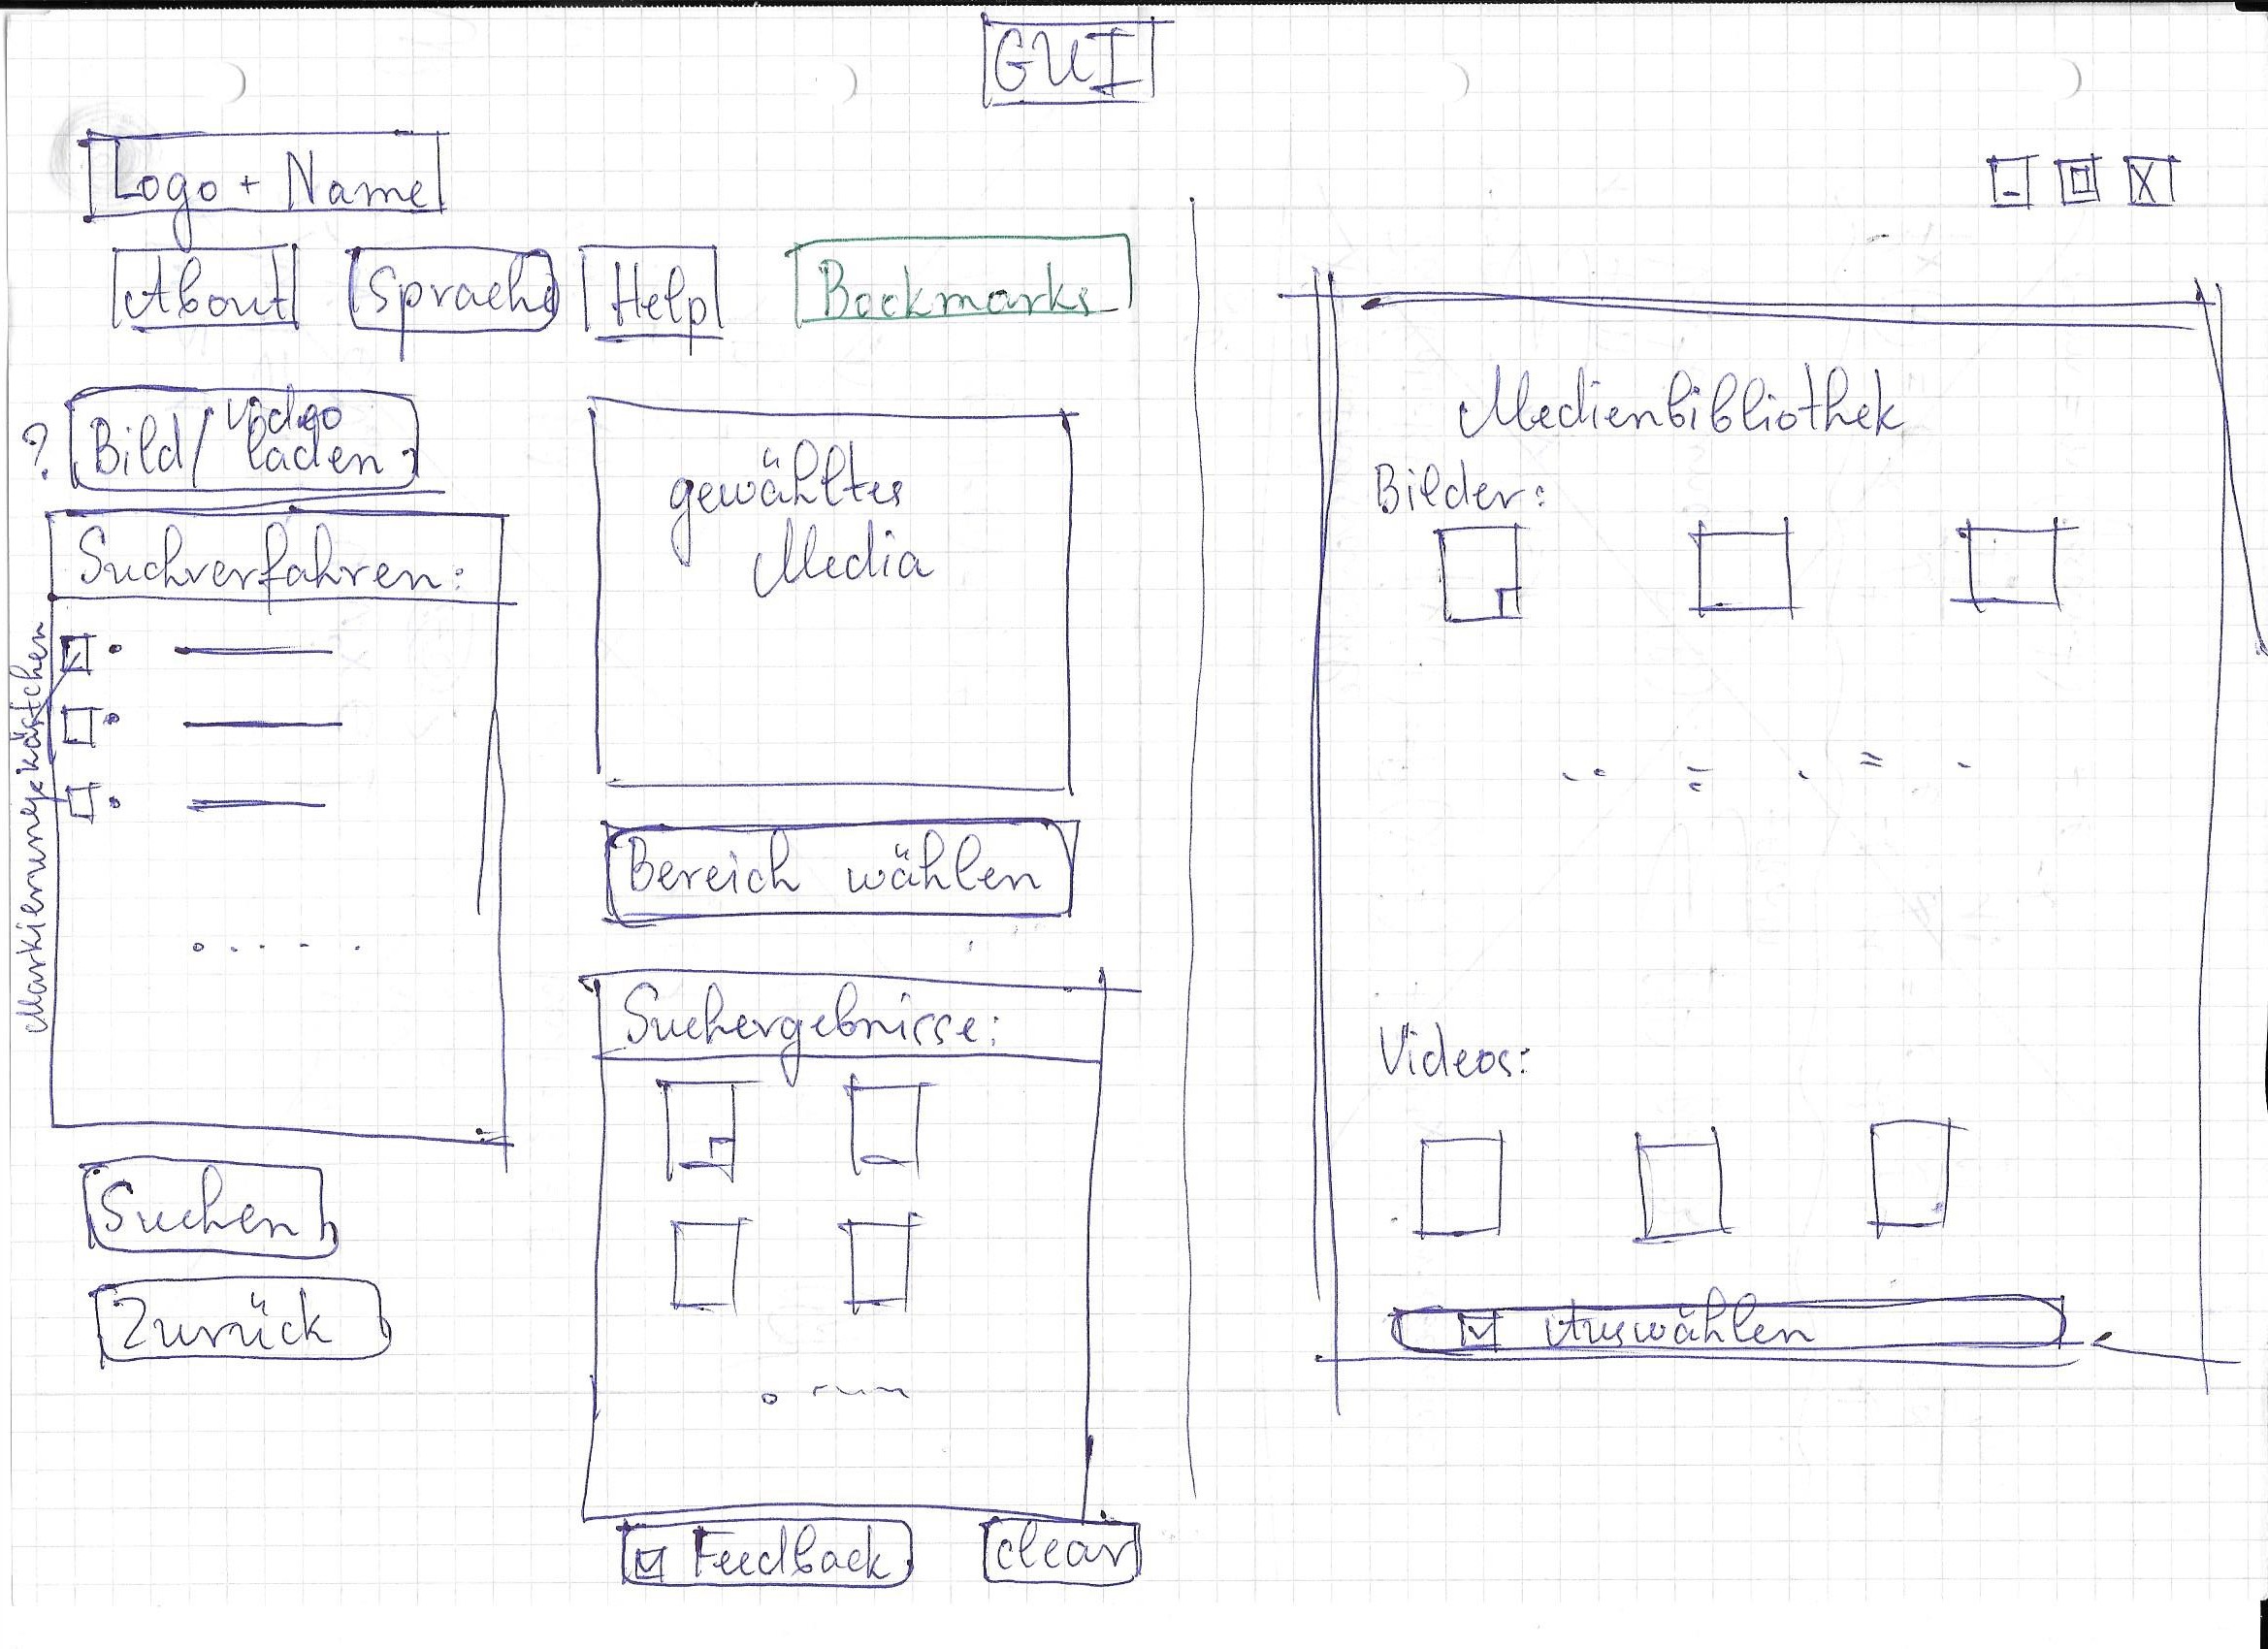 GUI
Logo + Name
- X
About Sprache Help Bookmarks
? Bild/Video laden
Suchverfahren:
Markierungskästchen
Suchen
Zurück
gewähltes
Media
Bereich wählen
Suchergebnisse:
Feedback clear
Medienbibliothek
Bilder:
Videos:
Auswählen